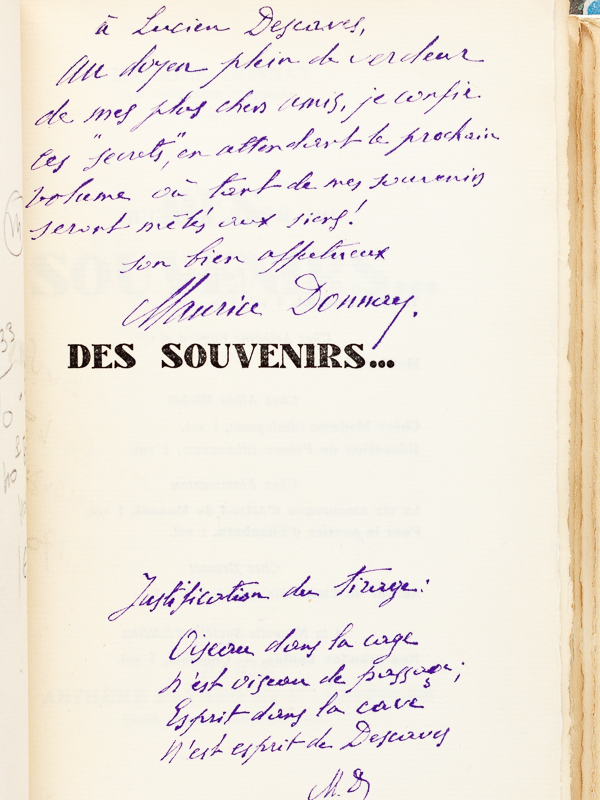 à Lucien Descaves,
au doyen plein de verdeur
de mes plus chers amis, je confie
ces "secrets", en attendant le prochain
volume où tant de mes souvenirs
seront mêlés aux siens!
son bien affectueux
Maurice Donnay.
DES SOUVENIRS...
Justification du tirage:
Oiseau dans la cage
N'est oiseau de passage;
Esprit dans la cave
N'est esprit de Descaves
M. D
33